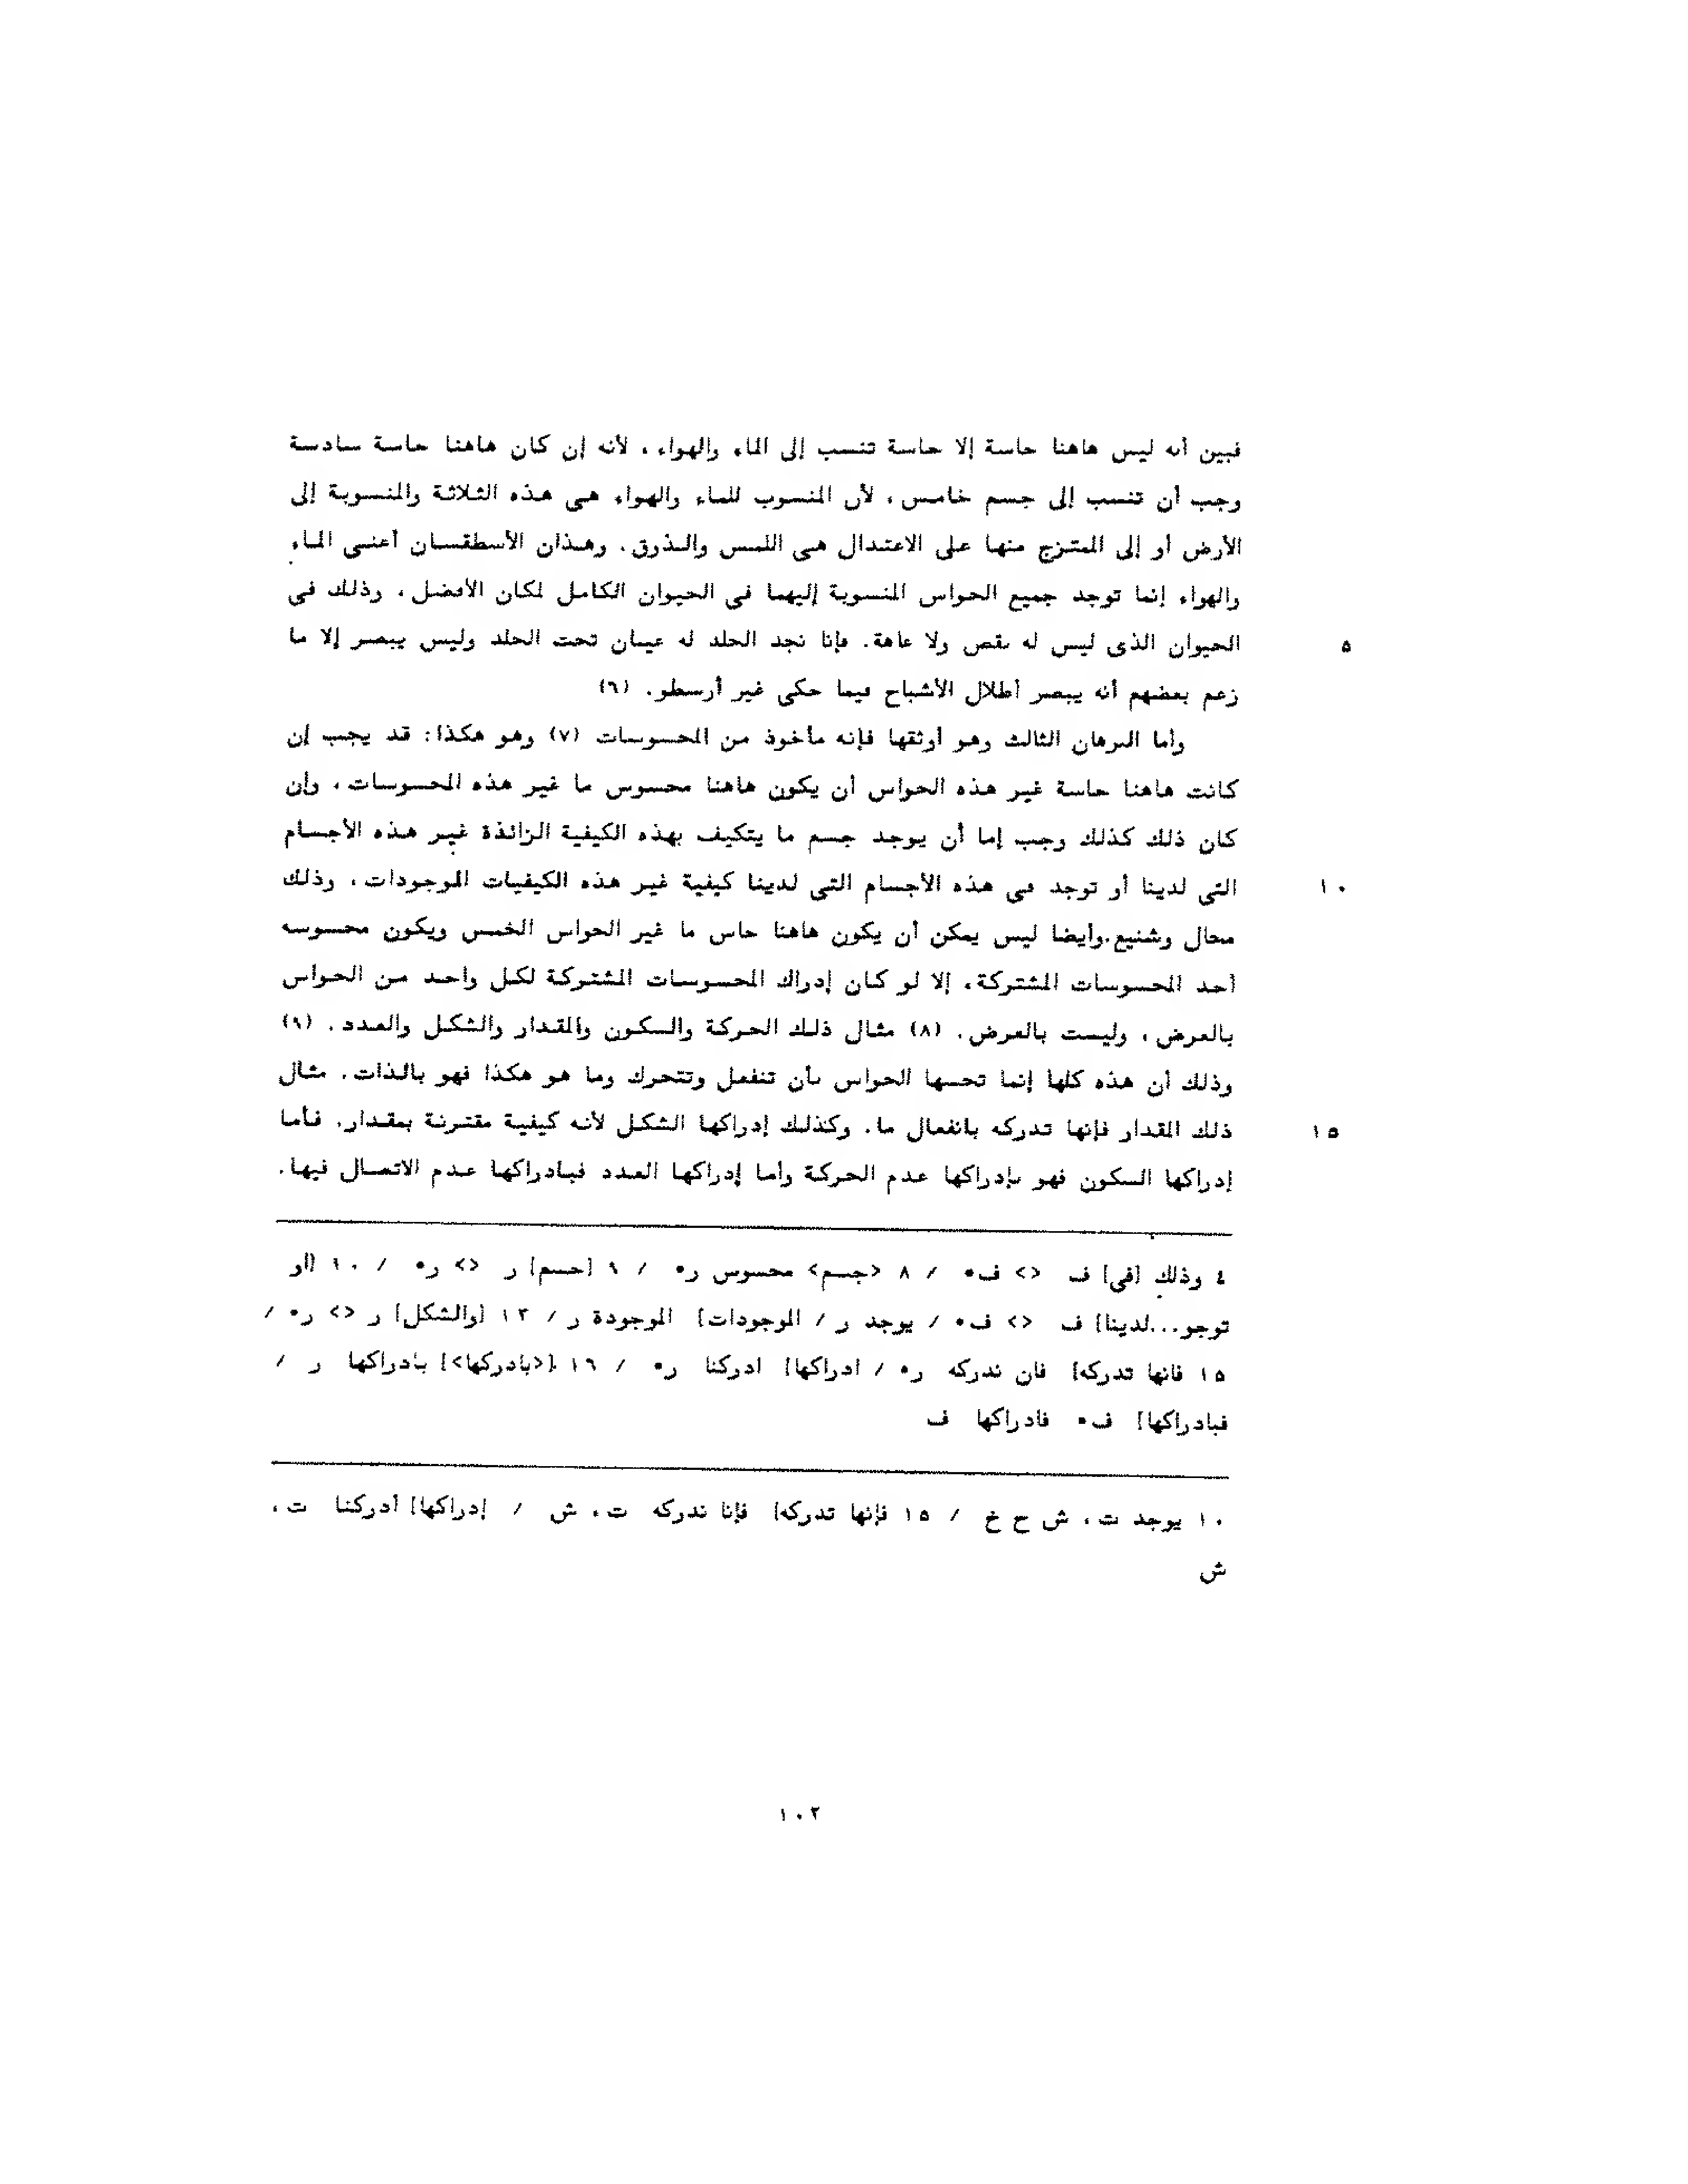 فبين أنه ليس هاهنا حاسة إلا حاسة تنسب إلى الماء والهواء، لأنه إن كان هاهنا حاسة سادسة
وجب أن تنسب إلى جسم خامس، لأن المنسوب للماء والهواء هى هذه الثلاثة والمنسوبة إلى
الأرض أو إلى الممتزج منها على الاعتدال هى اللمس والذوق. وهذان الأسطقسان أعنى الماء
والهواء إنما توجد جميع الحواس المنسوبة إليهما فى الحيوان الكامل لمكان الأفضل، وذلك فى
الحيوان الذى ليس له نقص ولا عاهة. فإنا نجد الخلد له عينان تحت الجلد وليس يبصر إلا ما
٥
زعم بعضهم أنه يبصر أطلال الأشباح فيما حكى غير أرسطو. (٦)
وأما البرهان الثالث وهو أوثقها فإنه مأخوذ من المحسوسات (٧) وهو هكذا: قد يجب إن
كانت هاهنا حاسة غير هذه الحواس أن يكون هاهنا محسوس ما غير هذه المحسوسات، وإن
كان ذلك كذلك وجب إما أن يوجد جسم ما يتكيف بهذه الكيفية الزائدة غير هذه الأجسام
التى لدينا أو توجد فى هذه الأجسام التى لدينا كيفية غير هذه الكيفيات الموجودات، وذلك
١٠
محال وشنيع.وأيضا ليس يمكن أن يكون هاهنا حاس ما غير الحواس الخمس ويكون محسوسه
أحد المحسوسات المشتركة، إلا لو كان إدراك المحسوسات المشتركة لكل واحد من الحواس
بالعرض، وليست بالعرض. (٨) مثال ذلك الحركة والسكون والمقدار والشكل والعدد. (٩)
وذلك أن هذه كلها إنما تحسها الحواس بأن تنفعل وتتحرك وما هو هكذا فهو بالذات. مثال
ذلك المقدار فإنها تدركه بانفعال ما. وكذلك إدراكها الشكل لأنه كيفية مقترنة بمقدار. فأما
١٥
إدراكها السكون فهو بإدراكها عدم الحركة وأما إدراكها العدد فبإدراكها عدم الاتصال فيها.
٤ وذلك [فى] ف <> ف* / ٨ <جسم> محسوس ر* / ٩ [جسم] ر <> ر* / ١٠ [أو
توجو...لدينا] ف <> ف* / يوجد ر / الموجودات] الموجودة ر / ١٣ [والشكل] ر <> ر* /
١٥ فانها تدركه] فان ندركه ر* / ادراكها] ادركنا ر* / ١٦ [<بادركها>] بادراكها ر /
فبادراكها] ف* فادراكها ف
١٠ يوجد ت، ش ح خ / ١٥ فإنها تدركه] فإنا ندركه ت، ش / إدراكها] أدركنا ت،
ش
١٠٢